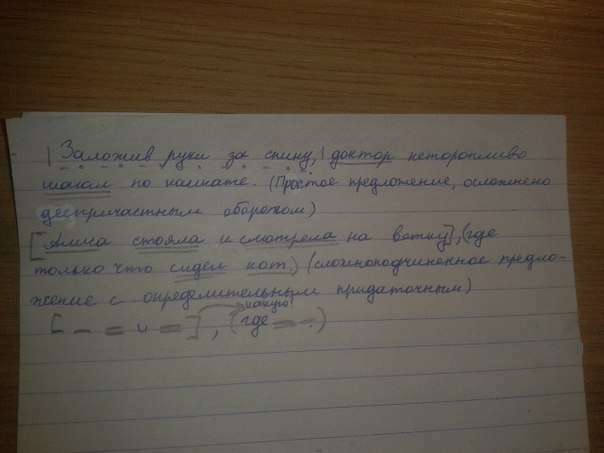 | Заложив руки за спину, | доктор неторопливо
шагал по комнате. (Простое предложение, осложнено
деепричастным оборотом)
[Алиса стояла и смотрела на ветку], (где
только что сидел кот) (сложноподчиненное предло-
жение с определительным придаточным)
какую?
[— = и =], (где = —)